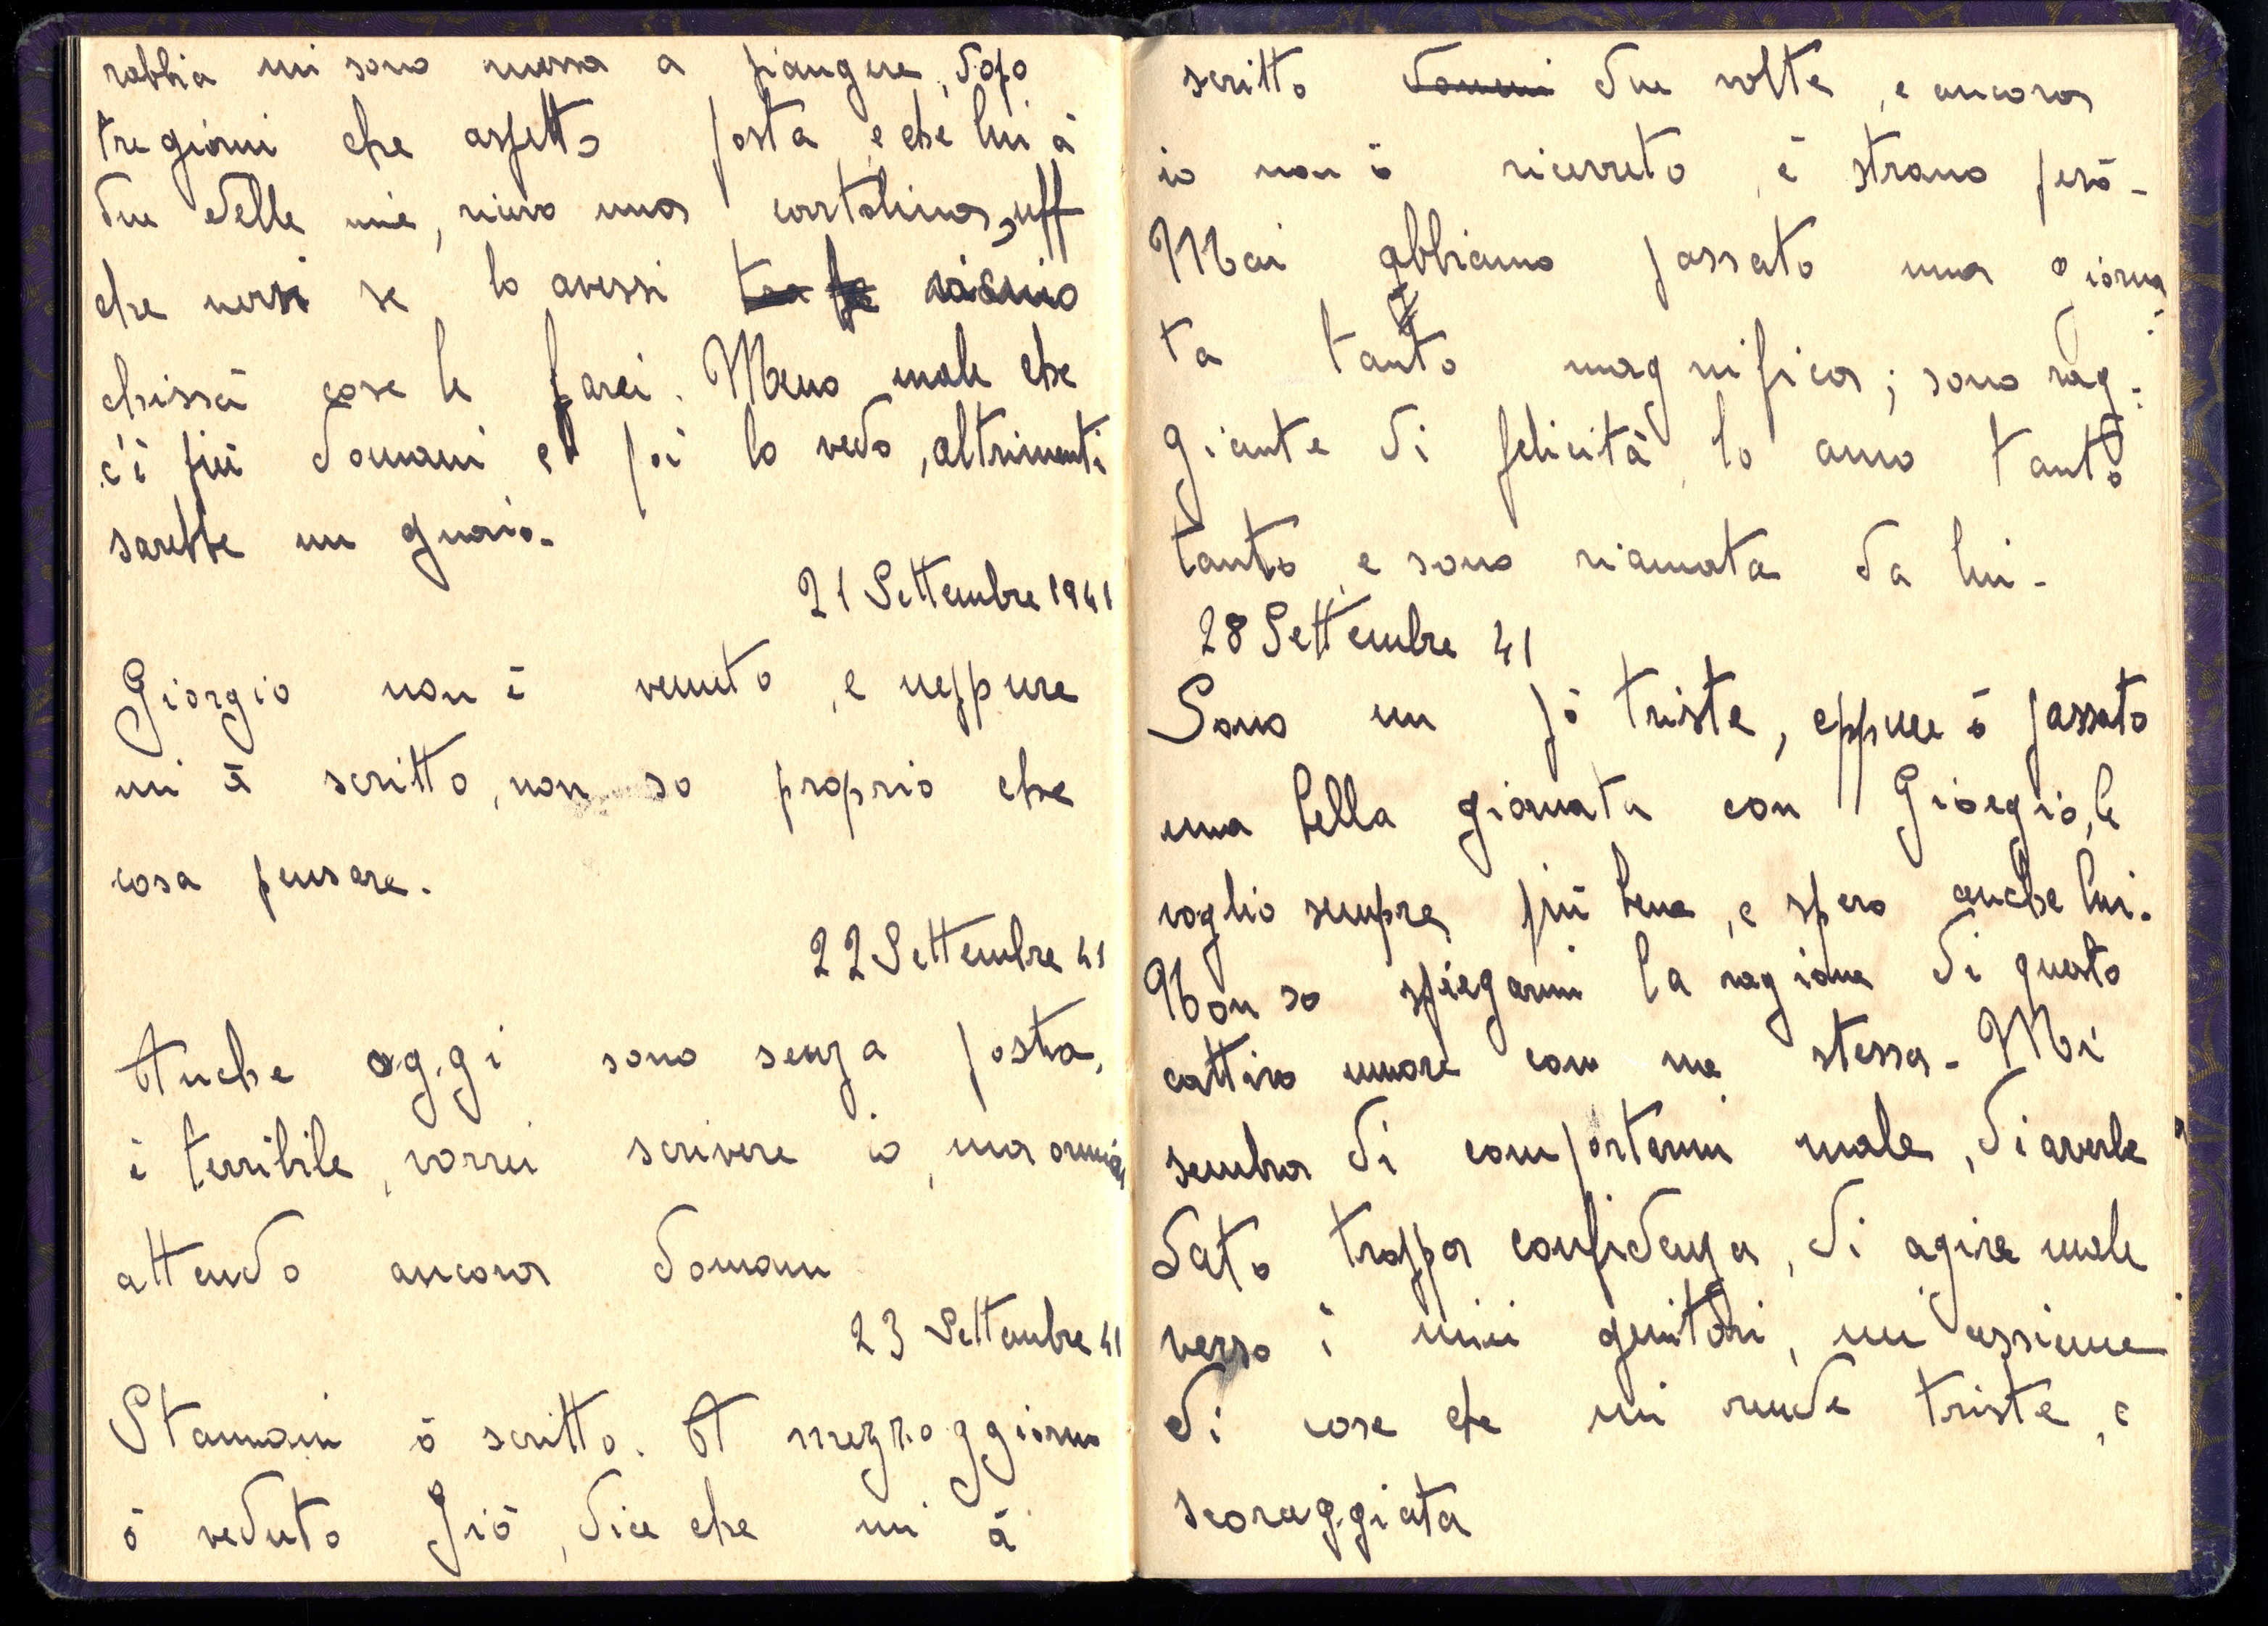 rabbia mi sono messa a piangere, dopo
tre giorni che aspetto posta, e che lui à
due delle mie, ricevo una cartolina, uff
che nervi se lo avessi vicino
chissà cose le farei. Meno male che
c'è più domani e poi lo vedo, altrimenti
sarebbe un guaio.
21 Settembre 1941
Giorgio non è venuto, e neppure
mi à scritto, non so proprio che
cosa pensare.
22 Settembre 41
Anche oggi sono senza posta,
è terribile, vorrei scrivere io, ma ormai
attendo ancora domani
23 Settembre 41
Stamani ò scritto. A mezzoggiorno
ò veduto Giò, dice che mi à
scritto due volte, e ancora
io non ò ricevuto, è strano però-
Mai abbiamo passato una giorna
ta tanto magnifica; sono rag:
giante di felicità, lo amo tanto
tanto, e sono riamata da lui-
28 Settembre 41
Sono un pò triste, eppure ò passato
una bella giornata con Giorgio, le
voglio sempre più bene, e spero anche lui.
Non so spiegarmi la ragione di questo
cattivo umore con me stessa- Mi
sembra di comportarmi male, di averle
dato troppa confidenza, di agire male
verso i miei genitori, un'assieme
di cose che mi rende triste, e
scoraggiata